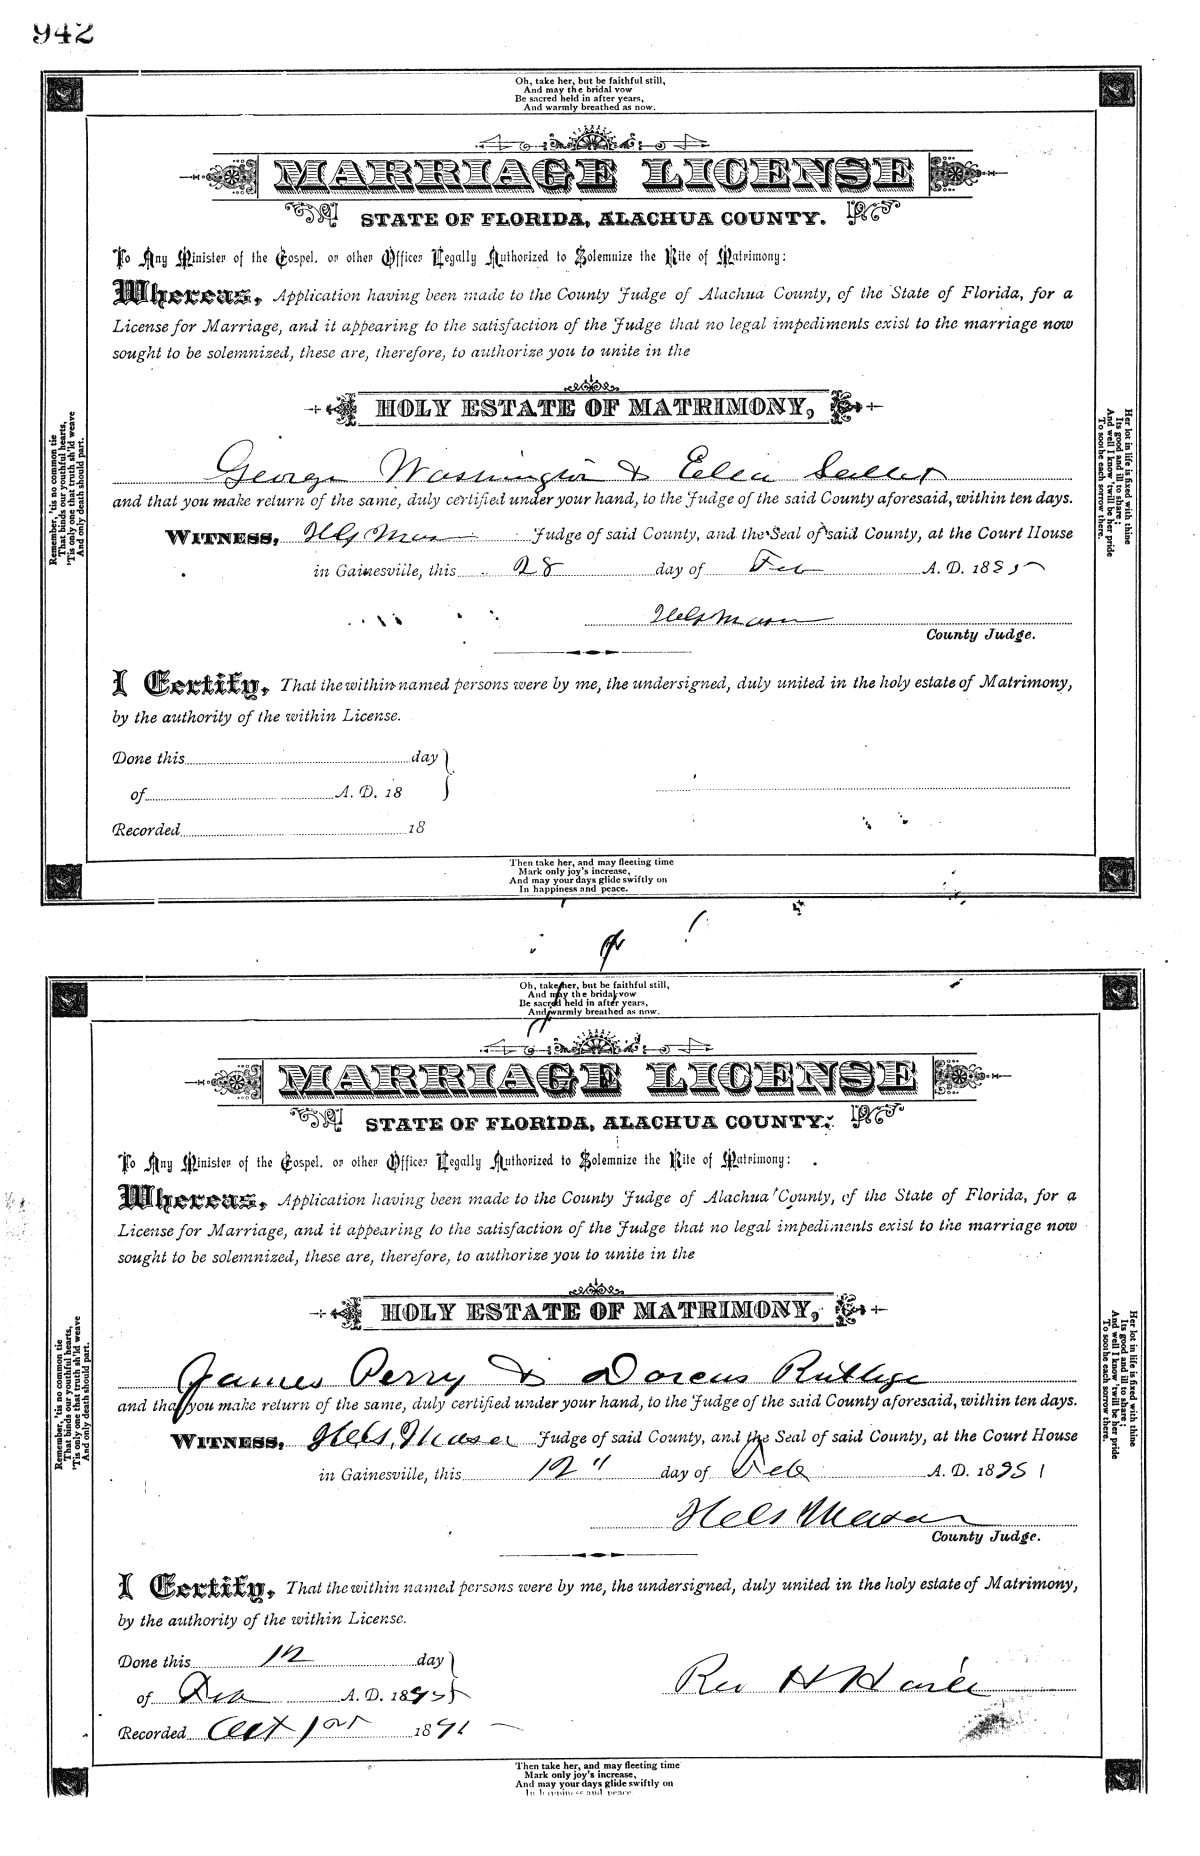 942
Oh, take her, but be faithful still,
And may the bridal vow
Be sacred held in after years,
And warmly breathed as now.
MARRIAGE LICENSE
STATE OF FLORIDA, ALACHUA COUNTY.
To Any Minister of the Gospel, or other Officer Legally Authorized to Solemnize the Rite of Matrimony:
Whereas, Application having been made to the County Judge of Alachua County, of the State of Florida, for a
License for Marriage, and it appearing to the satisfaction of the Judge that no legal impediments exist to the marriage now
sought to be solemnized, these are, therefore, to authorize you to unite in the
HOLY ESTATE OF MATRIMONY,
George Washington &
and that you make return of the same, duly certified under your hand, to the Judge of the said County aforesaid, within ten days.
WITNESS, Mason Judge of said County, and the Seal of said County, at the Court House
in Gainesville, this 28 day of Feb A. D. 18
Mason
County Judge.
I Certify, That the within named persons were by me, the undersigned, duly united in the holy estate of Matrimony,
by the authority of the within License.
Done this day
of A. D. 18
Recorded 18
Then take her, and may fleeting time
Mark only joy's increase,
And may your days glide swiftly on
In happiness and peace.
Remember, 'tis no common tie
That binds our youthful hearts,
'Tis only one that truth sh'ld weave
And only death should part.
Her lot in life is fixed with thine
Its good and ill to share;
And well I know 'twill be her pride
To soothe each sorrow there.
Oh, take her, but be faithful still,
And may the bridal vow
Be sacred held in after years,
And warmly breathed as now.
MARRIAGE LICENSE
STATE OF FLORIDA, ALACHUA COUNTY.
To Any Minister of the Gospel, or other Officer Legally Authorized to Solemnize the Rite of Matrimony:
Whereas, Application having been made to the County Judge of Alachua County, of the State of Florida, for a
License for Marriage, and it appearing to the satisfaction of the Judge that no legal impediments exist to the marriage now
sought to be solemnized, these are, therefore, to authorize you to unite in the
HOLY ESTATE OF MATRIMONY,
James Perry & Dorcus Rutlege
and that you make return of the same, duly certified under your hand, to the Judge of the said County aforesaid, within ten days.
WITNESS, Mason Judge of said County, and the Seal of said County, at the Court House
in Gainesville, this 12" day of Feb A. D. 18
Mason
County Judge.
I Certify, That the within named persons were by me, the undersigned, duly united in the holy estate of Matrimony,
by the authority of the within License.
Done this 12 day
of A. D. 18
Rev H
Recorded 18
Then take her, and may fleeting time
Mark only joy's increase,
And may your days glide swiftly on
In happiness and peace.
Remember, 'tis no common tie
That binds our youthful hearts,
'Tis only one that truth sh'ld weave
And only death should part.
Her lot in life is fixed with thine
Its good and ill to share;
And well I know 'twill be her pride
To soothe each sorrow there.